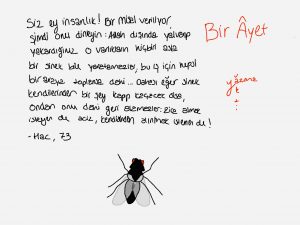 Siz ey insanlık! Bir misal veriliyor
şimdi onu dinleyin: Allah dışında yalvarıp
yakardığınız o varlıkların hiçbiri asla
bir sinek bile yaratamazlar, bu iş için hepsi
bir araya toplansa dahi... Şayet eğer sinek
kendilerinden bir şey kapıp kaçacak olsa,
ondan onu dahi geri alamazlar.
isteyen de aciz, kendisinden istenen de!
- Hac, 73
Bir Âyet